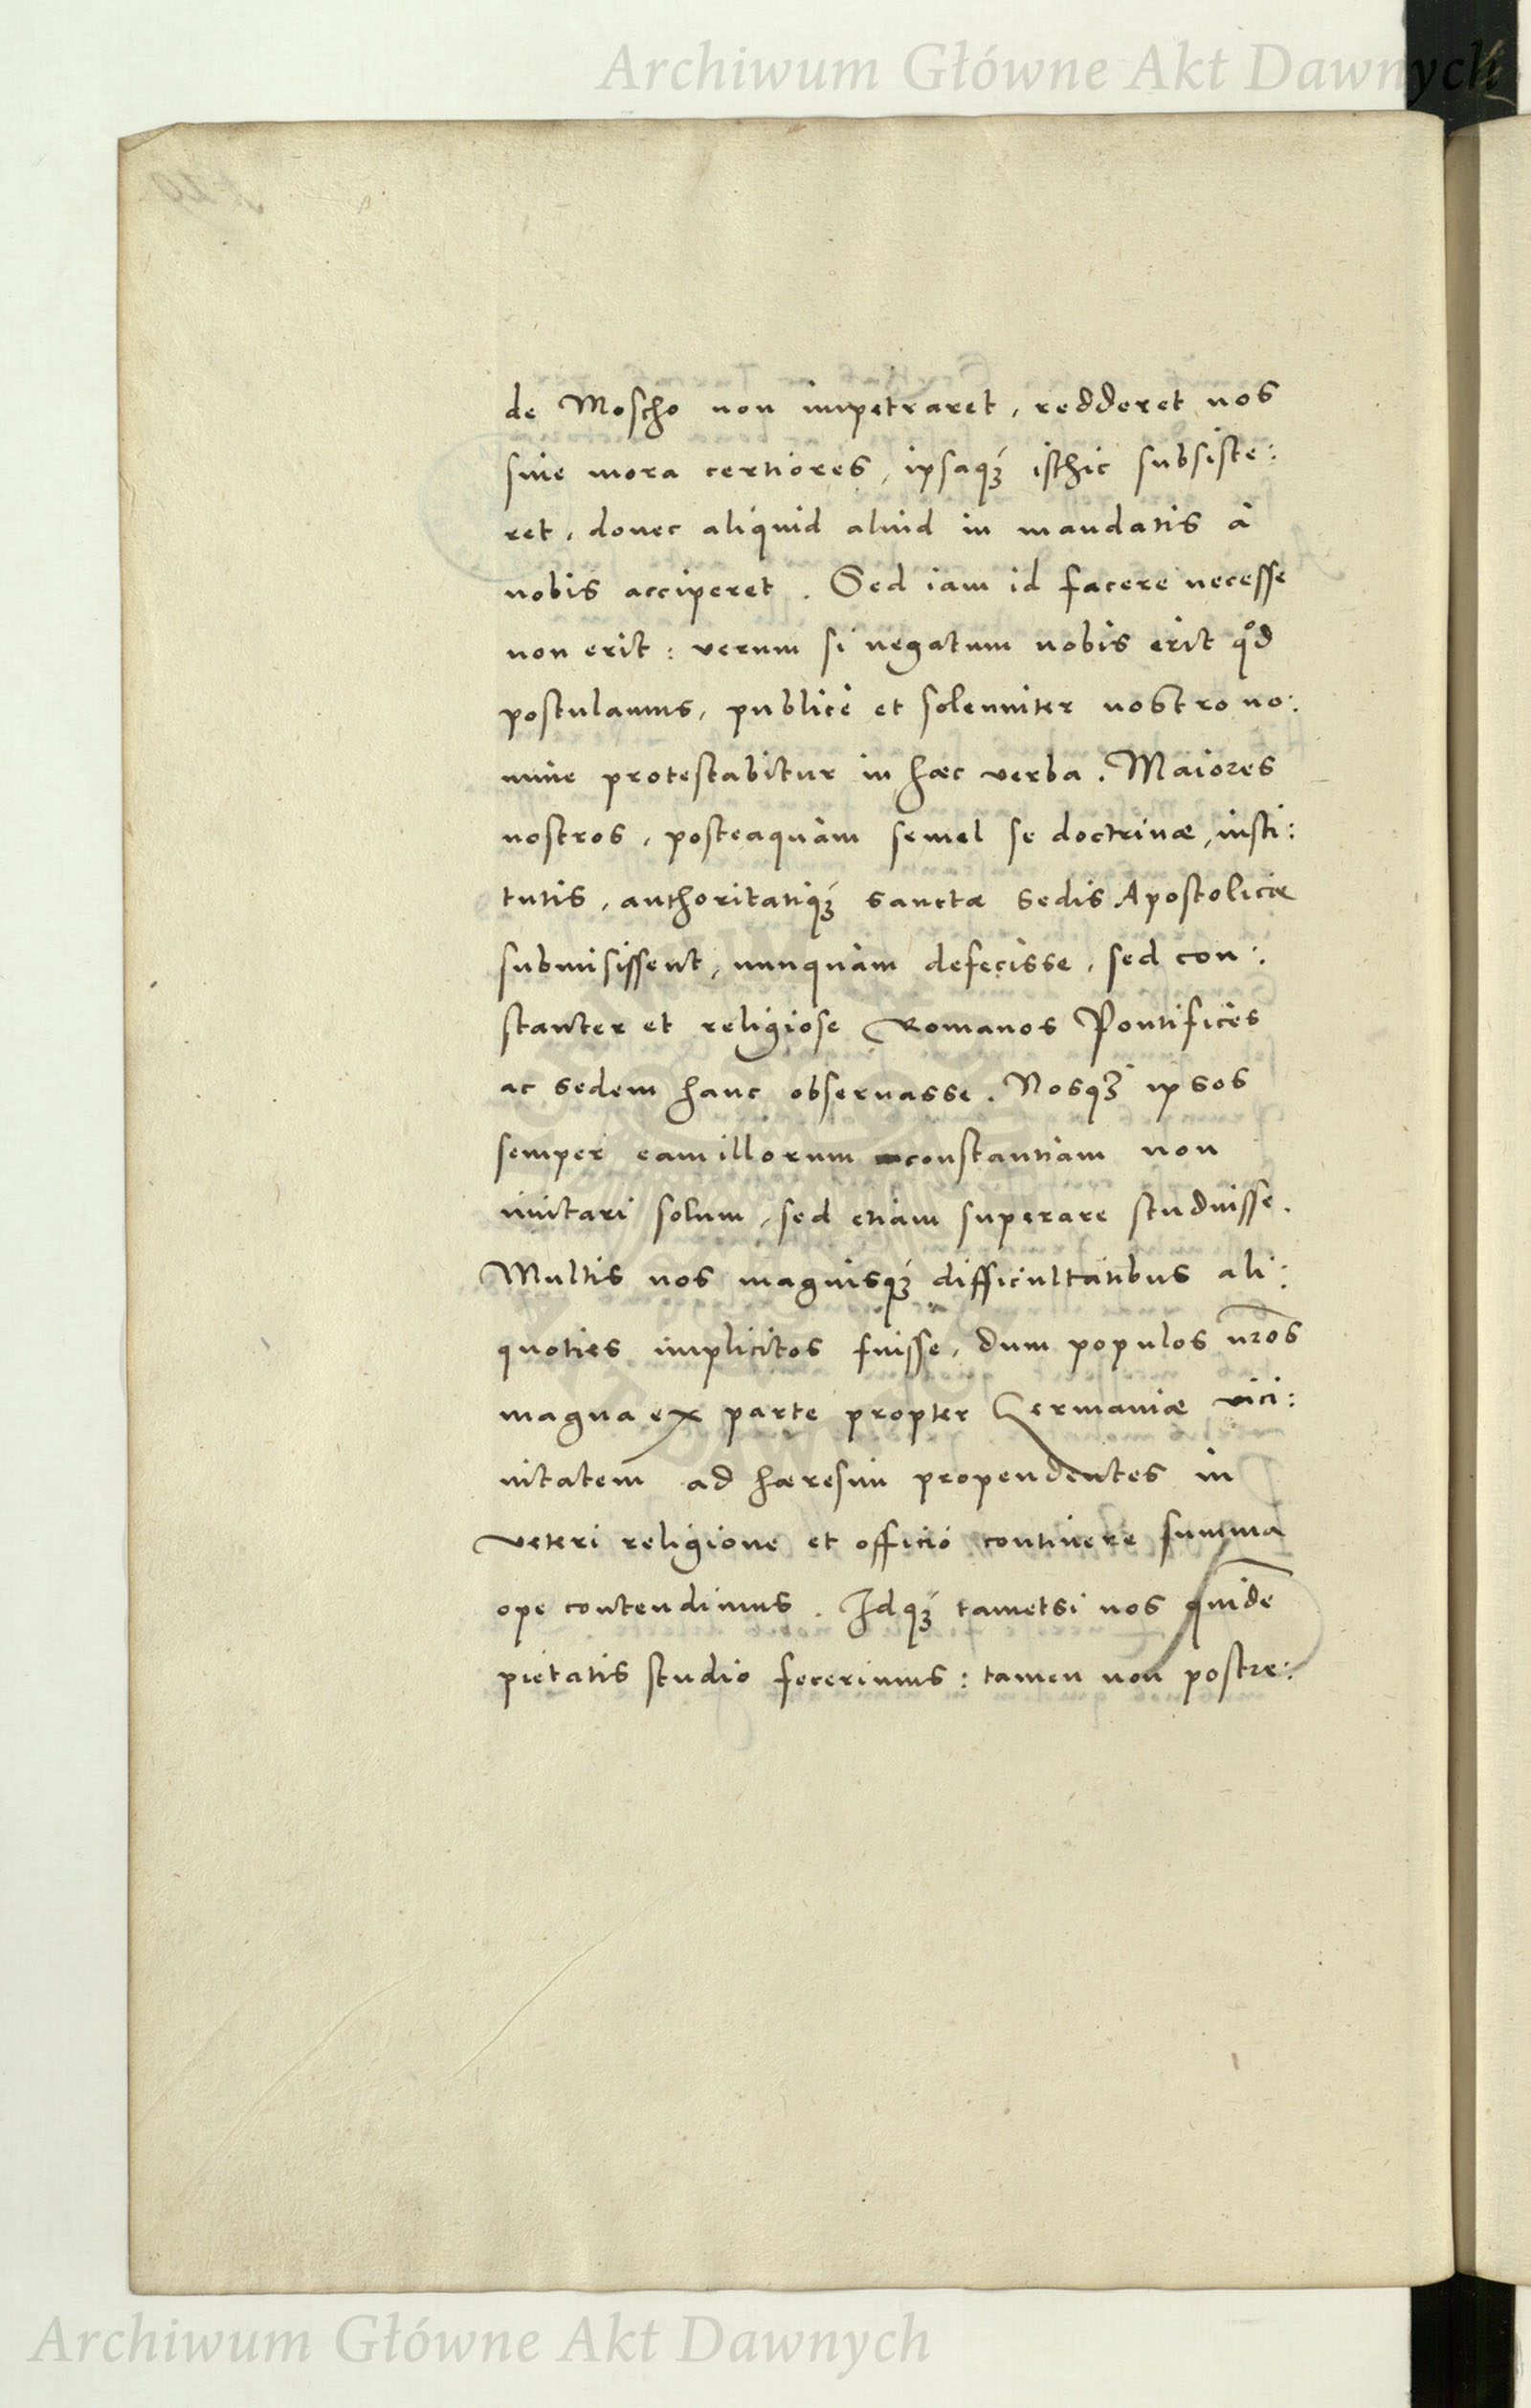 Archiwum Główne Akt Dawnych
de Moscho non impetraret, redderet nos
sine mora certiores, ipsaqꝫ isthic subsiste:
ret, donec aliquid aliud in mandatis à
nobis acciperet. Sed iam id facere necesse
non erit: verum si negatum nobis erit qͦd
postulamus, publicè et solenniter nostro no:
mine protestabitur in hæc verba. Maiores
nostros, posteaquàm semel se doctrinæ, insti:
tutis, authoritatiqꝫ sanctæ sedis Apostolicæ
submisissent, nunquàm defecisse, sed con:
stanter et religiose Romanos Pontifices
ac sedem hanc obseruasse. Nosqꝫ ipsos
semper eam illorum constantiam non
imitari solum, sed etiam superare studuisse.
Multis nos magnisqꝫ difficultatibus ali:
quoties implicitos fuisse, dum populos nr̃os
magna ex parte propter Germaniæ vici:
nitatem ad hæresim propendentes in
veteri religione et officio continere summa
ope contendimus. Idqꝫ tametsi nos quidē
pietatis studio fecerimus: tamen non postre:
Archiwum Główne Akt Dawnych